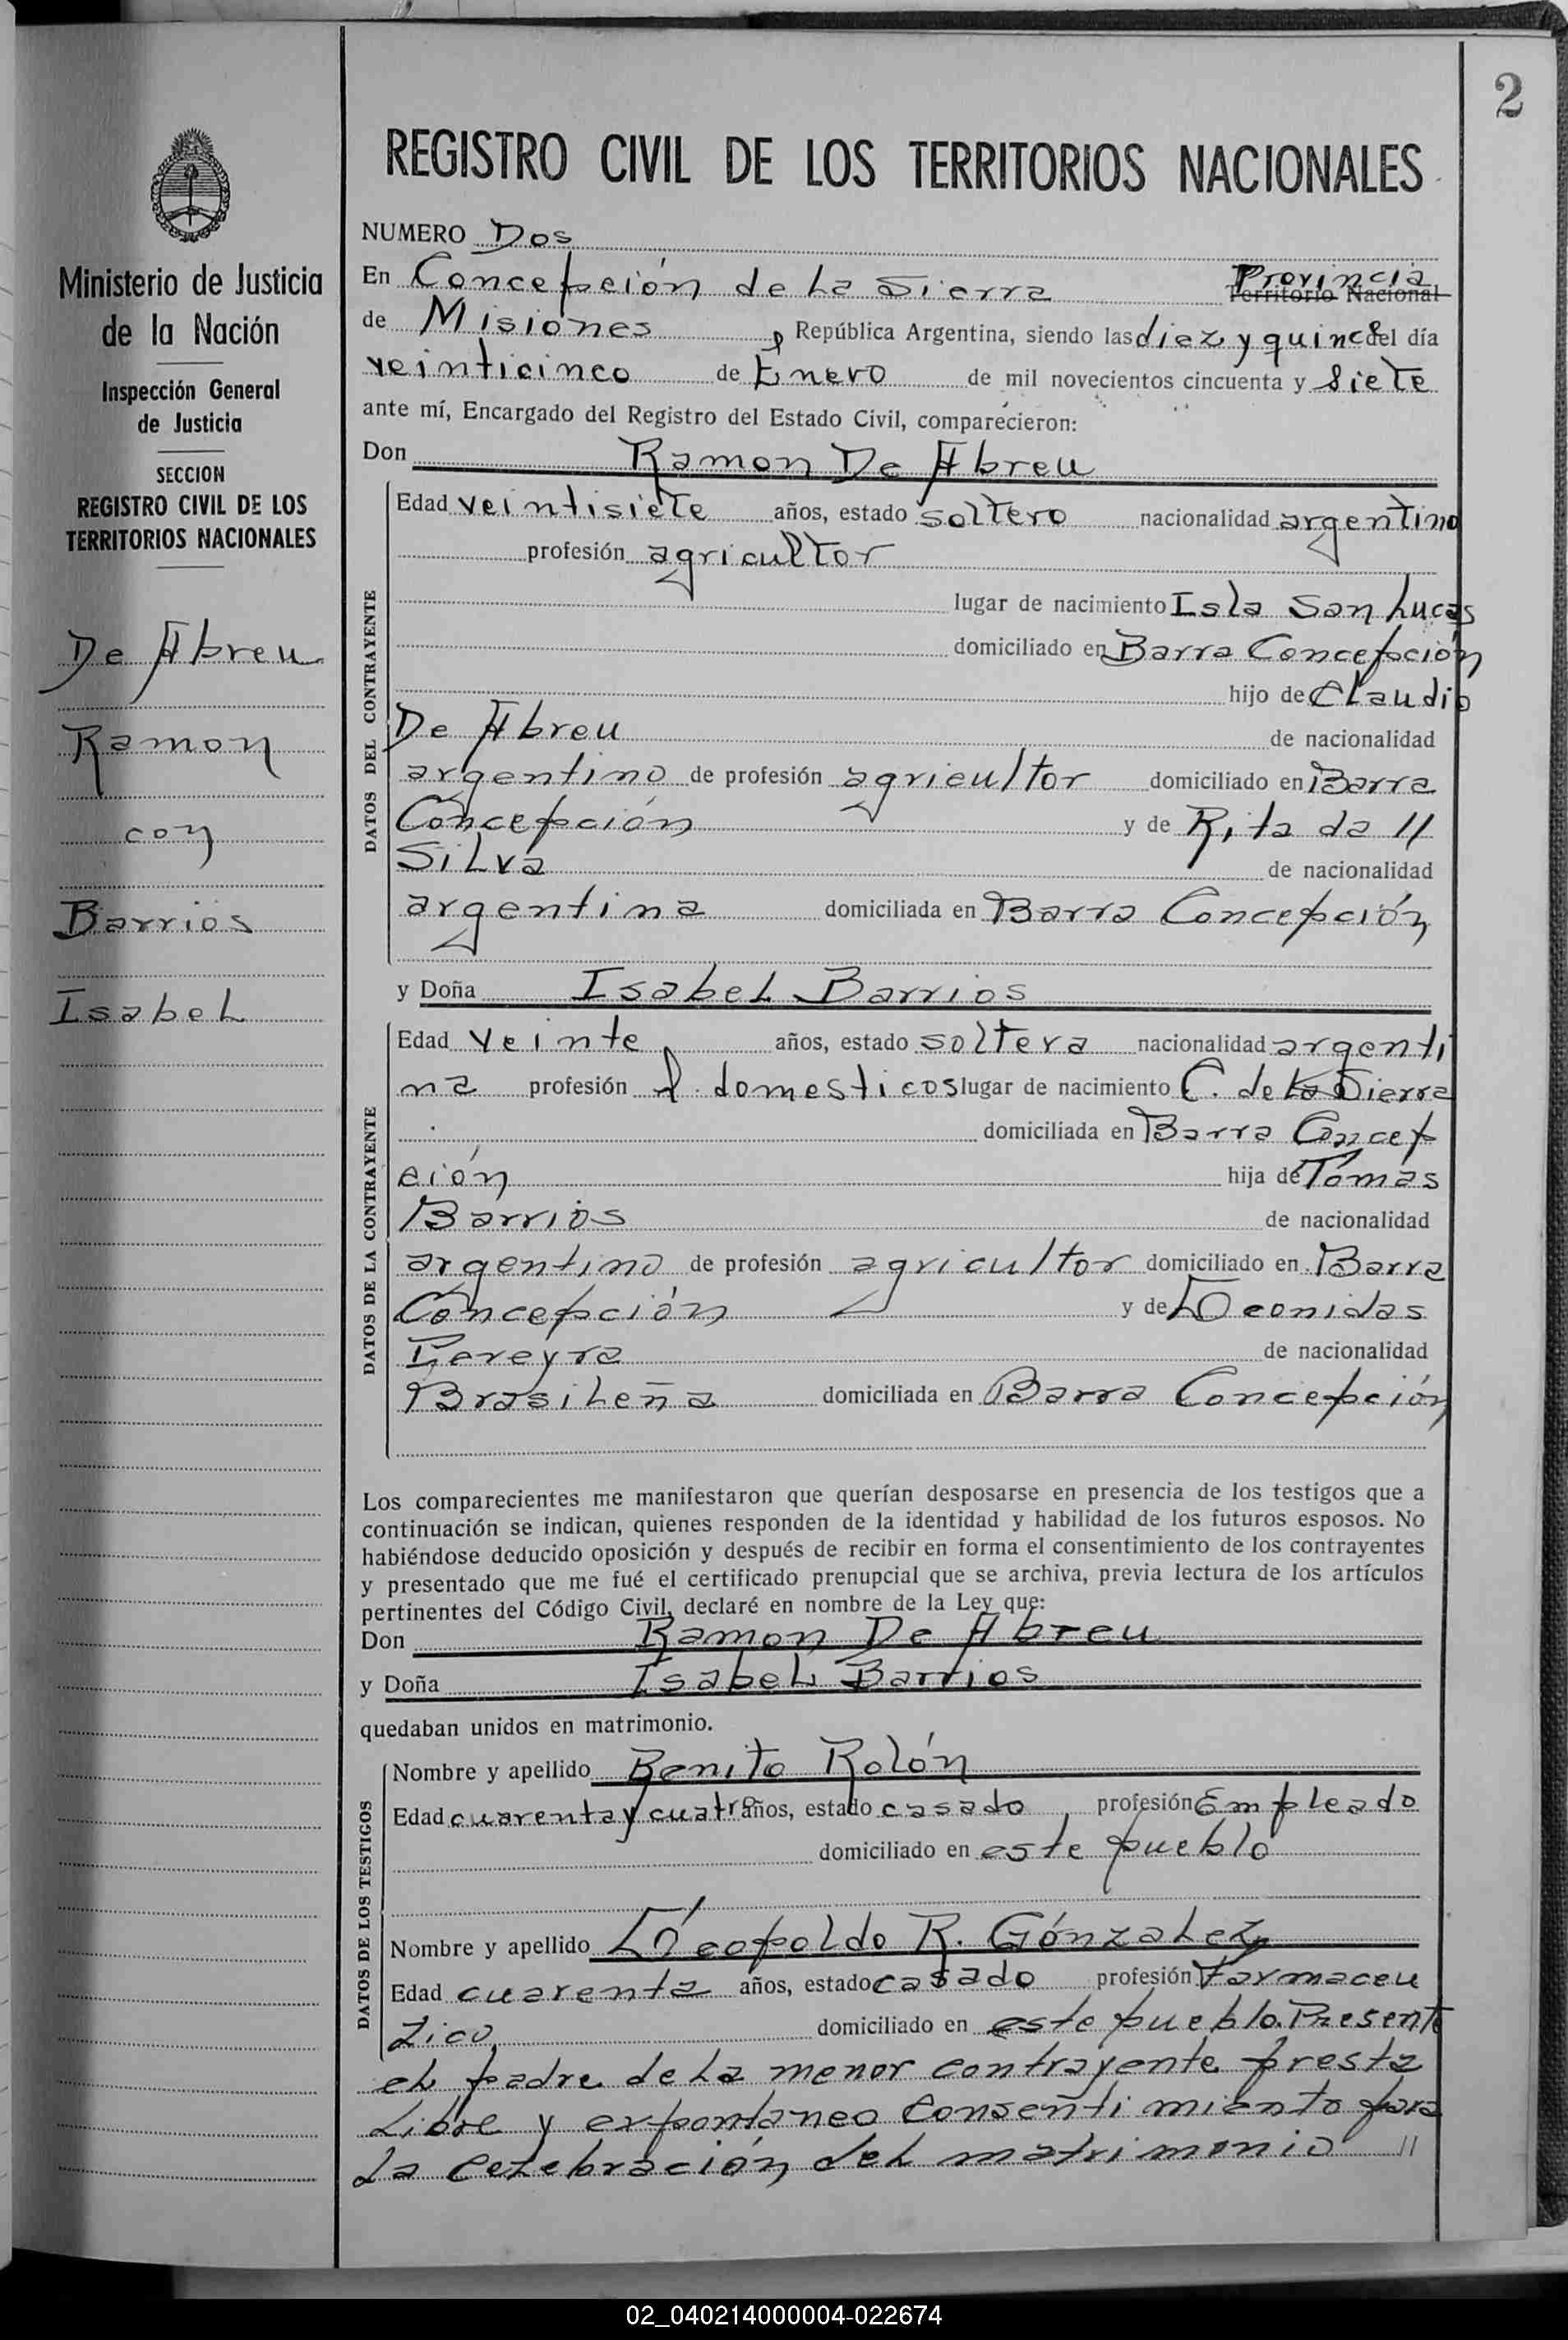 2
Ministerio de Justicia
de la Nación
Inspección General
de Justicia
SECCION
REGISTRO CIVIL DE LOS
TERRITORIOS NACIONALES
De Abreu
Ramon
con
Barrios
Isabel
REGISTRO CIVIL DE LOS TERRITORIOS NACIONALES
NUMERO Dos
En Concepción de La Sierra Provincia Territorio Nacional
de Misiones, República Argentina, siendo las diez y quince del día
veinticinco de Enero de mil novecientos cincuenta y siete
ante mí, Encargado del Registro del Estado Civil, comparecieron:
Don Ramon De Abreu
DATOS DEL CONTRAYENTE
Edad veintisiete años, estado soltero nacionalidad argentino
profesión agricultor
lugar de nacimiento Isla San Lucas
domiciliado en Barra Concepción
hijo de Claudio
De Abreu de nacionalidad
argentino de profesión agricultor domiciliado en Barra
Concepción y de Rita da //
Silva de nacionalidad
argentina domiciliada en Barra Concepción
y Doña Isabel Barrios
DATOS DE LA CONTRAYENTE
Edad veinte años, estado soltera nacionalidad argenti
na profesión q. domesticos lugar de nacimiento C. de la Sierra
domiciliada en Barra Concep
ción hija de Tomás
Barrios de nacionalidad
argentino de profesión agricultor domiciliado en Barra
Concepción y de Leonidas
Pereyra de nacionalidad
Brasileña domiciliada en Barra Concepción
Los comparecientes me manifestaron que querían desposarse en presencia de los testigos que a
continuación se indican, quienes responden de la identidad y habilidad de los futuros esposos. No
habiéndose deducido oposición y después de recibir en forma el consentimiento de los contrayentes
y presentado que me fué el certificado prenupcial que se archiva, previa lectura de los artículos
pertinentes del Código Civil, declaré en nombre de la Ley que:
Don Ramon De Abreu
y Doña Isabel Barrios
quedaban unidos en matrimonio.
DATOS DE LOS TESTIGOS
Nombre y apellido Benito Rolón
Edad cuarenta y cuatro años, estado casado, profesión Empleado
domiciliado en este pueblo
Nombre y apellido Leopoldo R. Gónzalez
Edad cuarenta años, estado casado profesión Farmaceu
tico, domiciliado en este pueblo. Presente
el padre de la menor contrayente presta
libre y expontaneo consentimiento para
la celebración del matrimonio //
02_040214000004-022674